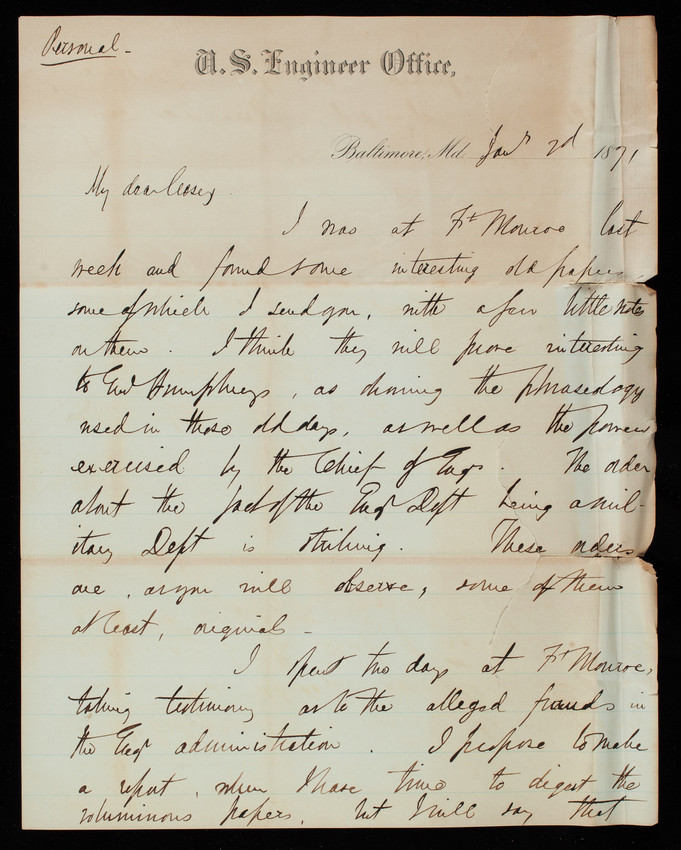 Personal -
U. S. Engineer Office,
Baltimore, Md. Jany 2d 1871
My dear Casey
I was at Ft Monroe last
week and found some interesting old papers,
some of which I send you, with a few little notes
on them. I think they will prove interesting
to Genl Humphreys, as showing the phraseology
used in those old days, as well as the powers
exercised by the Chief of Engrs. The order
about the fact of the Engr Dept being a mil-
itary Dept is striking. These orders
are, as you will observe, some of them
at least, originals -
I spent two days at Ft Monroe,
taking testimony as to the alleged frauds in
the Engr administration. I propose to make
a report, when I have time to digest the
voluminous papers, but I will say that